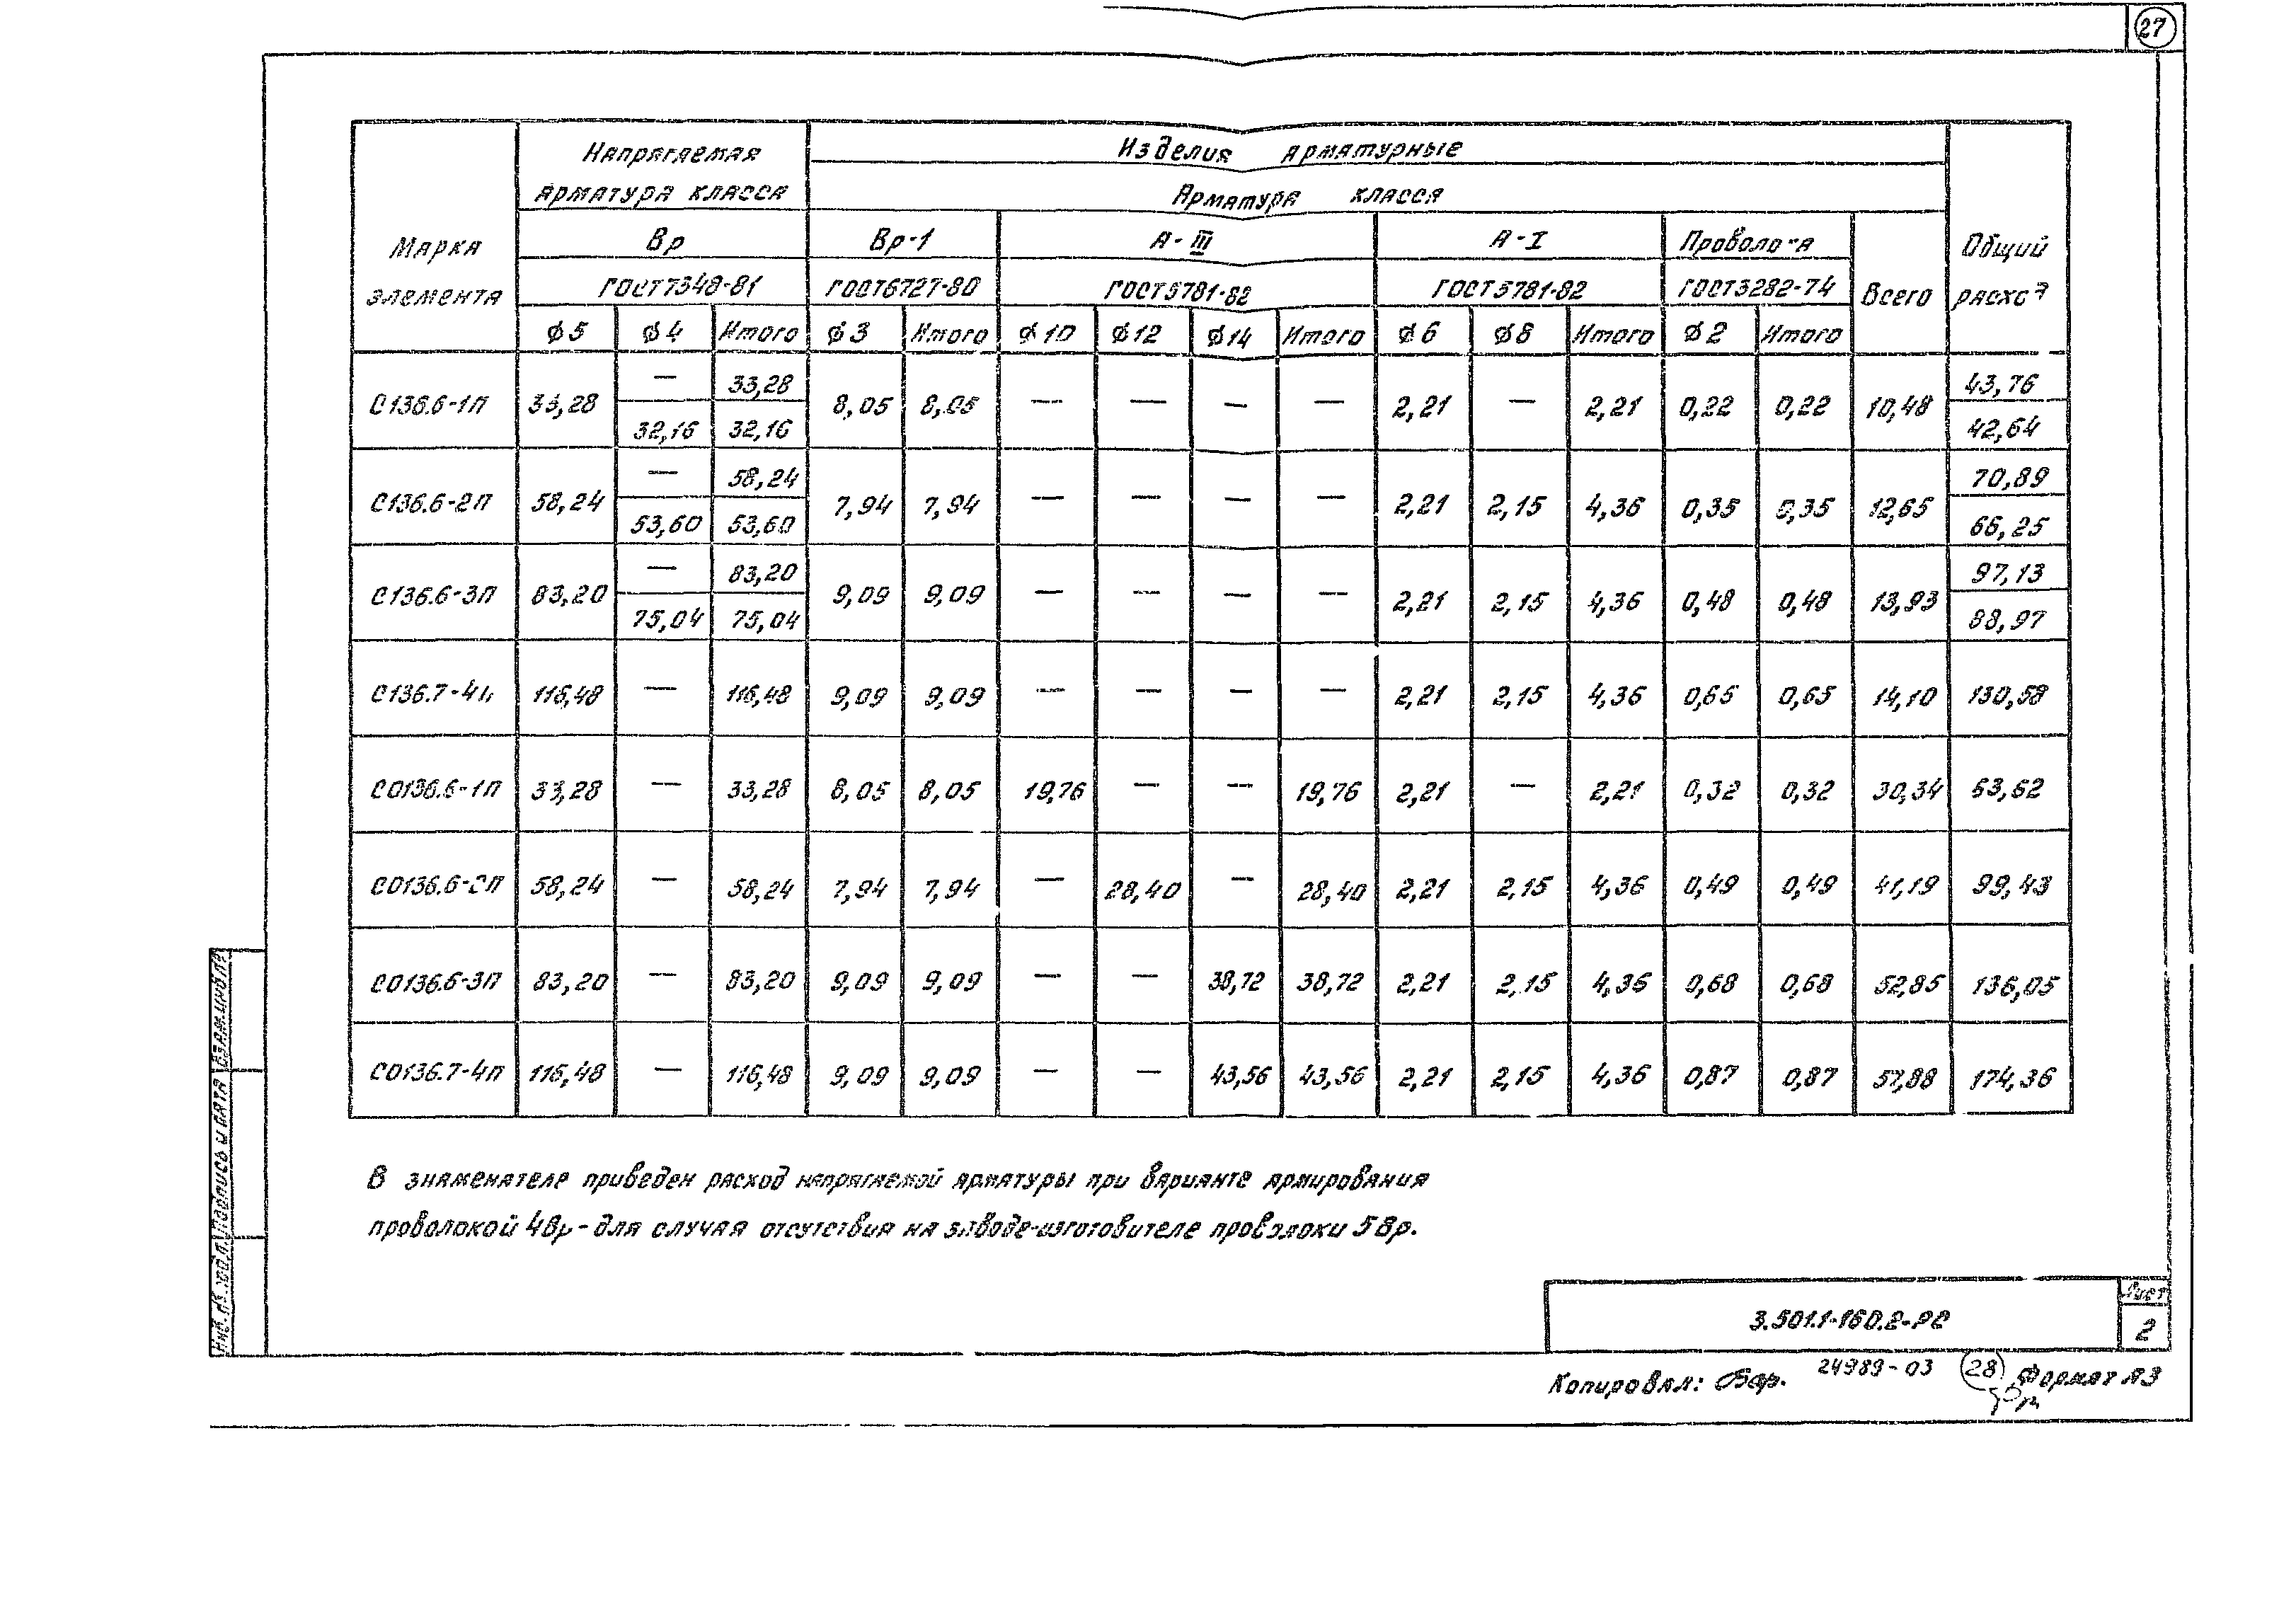 27
Марка элемента | Напрягаемая арматура класса | Изделия арматурные | Общий
Арматура класса
Вр | Вр-1 | А-III | А-I | Всего
ГОСТ7348-81 | ГОСТ6727-80 | ГОСТ5781-82 | ГОСТ5781-82 | ГОСТ3282-74
ϕ5 | ϕ4 | Итого | ϕ3 | Итого | ϕ10 | ϕ12 | ϕ14 | Итого | ϕ6 | ϕ8 | Итого | ϕ2 | Итого
С136.6-1П | 33,28 | — | 33,28 | 8,05 | 8,05 | — | — | — | — | 2,21 | — | 2,21 | 0,22 | 0,22 | 10,48 | 43,76
32,16 | 32,16 | 42,64
С136.6-2П | 58,24 | — | 58,24 | 7,94 | 7,94 | — | — | — | — | 2,21 | 2,15 | 4,36 | 0,35 | 0,35 | 12,65 | 70,89
53,60 | 53,60 | 66,25
С136.6-3П | 83,20 | — | 83,20 | 9,09 | 9,09 | — | — | — | — | 2,21 | 2,15 | 4,36 | 0,48 | 0,48 | 13,93 | 97,13
75,04 | 75,04 | 88,97
С136.7-4П | 116,48 | — | 116,48 | 9,09 | 9,09 | — | — | — | — | 2,21 | 2,15 | 4,36 | 0,65 | 0,65 | 14,10 | 130,58
СО136.6-1П | 33,28 | — | 33,28 | 8,05 | 8,05 | 19,76 | — | — | 19,76 | 2,21 | — | 2,21 | 0,32 | 0,32 | 30,34 | 63,62
58,24 | — | 58,24 | 7,94 | 7,94 | — | 28,40 | — | 28,40 | 2,21 | 2,15 | 4,36 | 0,49 | 0,49 | 41,19 | 99,43
СО136.6-3П | 83,20 | — | 83,20 | 9,09 | 9,09 | — | — | 38,72 | 38,72 | 2,21 | 2,15 | 4,36 | 0,68 | 0,68 | 52,85 | 136,05
СО136.7-4П | 116,48 | — | 116,48 | 9,09 | 9,09 | — | — | 43,56 | 43,56 | 2,21 | 2,15 | 4,36 | 0,87 | 0,87 | 57,88 | 174,36
В знаменателе приведен расход напрягаемой арматуры при варианте армирования
проволокой 4Вр - для случая отсутствия на заводе-изготовителе проволоки 5Вр.
Взам.инв.№
Подпись и дата
Инв. № подл.
3.501.1-160.2-РС
Лист
2
Копировал: 24989-03 28 Формат А3